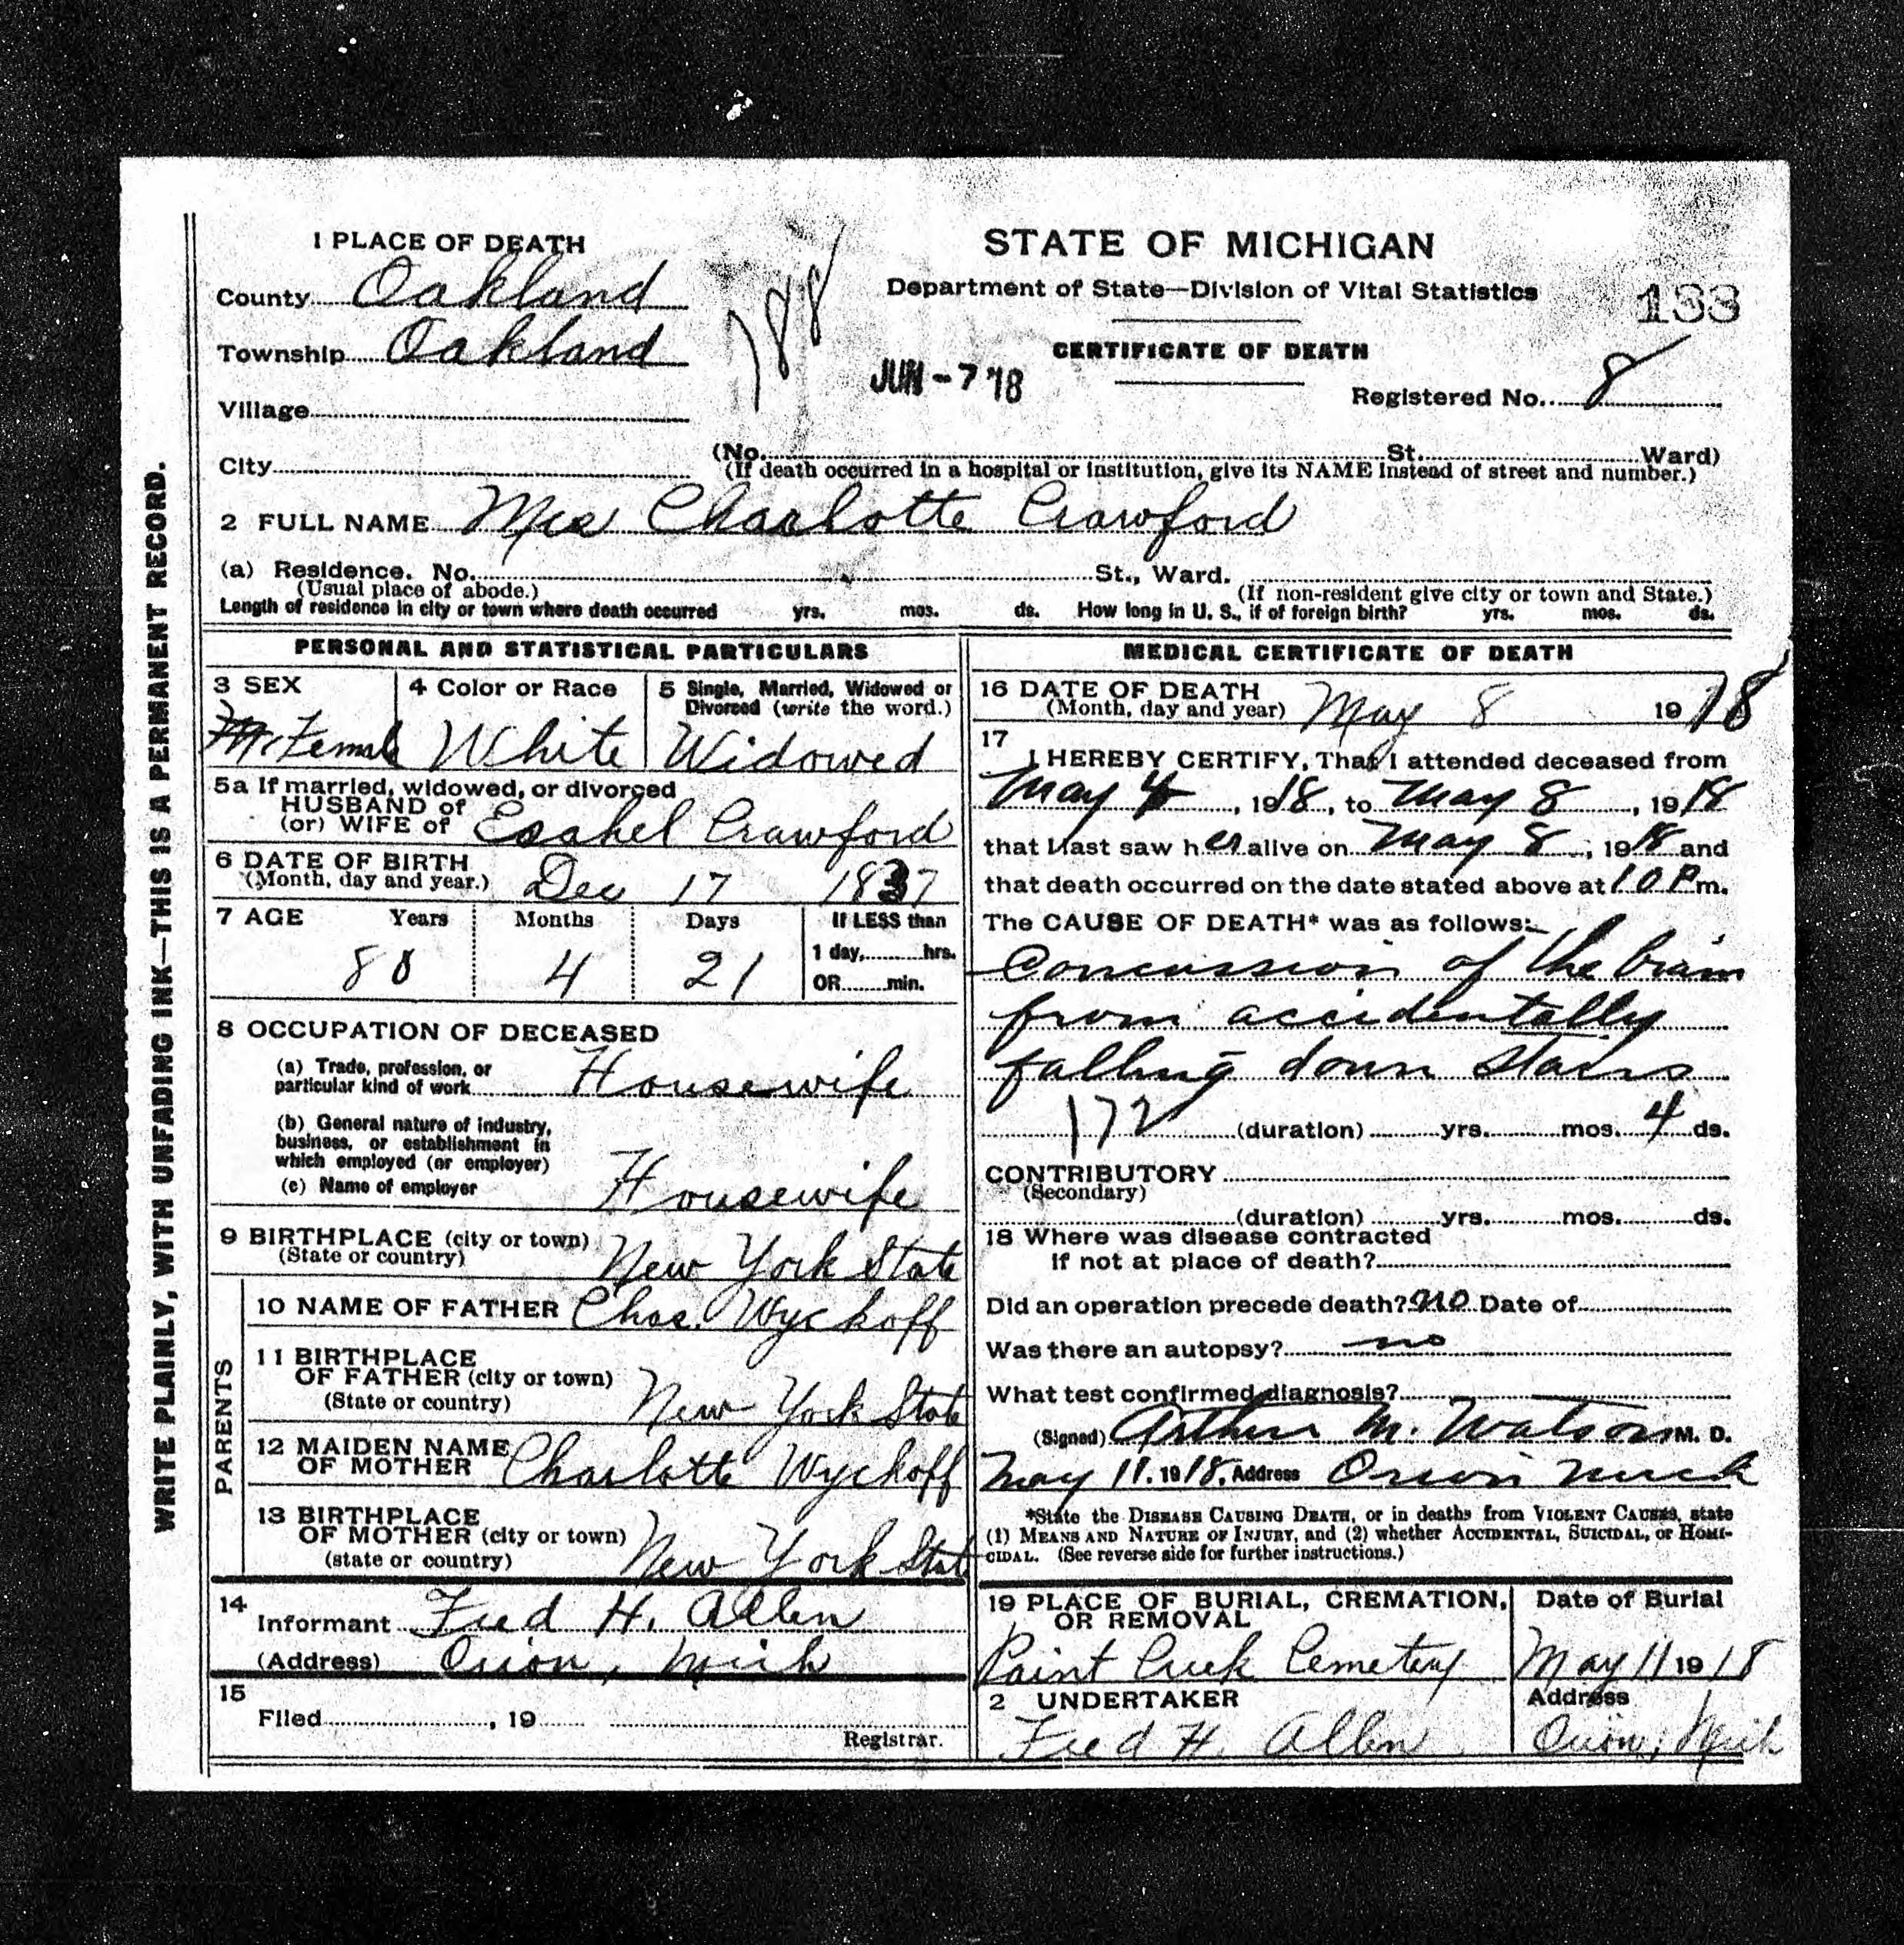 1 PLACE OF DEATH
County Oakland
Township Oakland
Village
City
188
STATE OF MICHIGAN
Department of State—Division of Vital Statistics
133
CERTIFICATE OF DEATH
JUN - 7 '18
Registered No. 8
(No. St. Ward)
(If death occurred in a hospital or institution, give its NAME instead of street and number.)
2 FULL NAME Mrs Charlotte Crawford
(a) Residence. No. St., Ward.
(Usual place of abode.) (If non-resident give city or town and State.)
Length of residence in city or town where death occurred yrs. mos. ds. How long in U. S., if of foreign birth? yrs. mos. ds.
WRITE PLAINLY, WITH UNFADING INK—THIS IS A PERMANENT RECORD.
PERSONAL AND STATISTICAL PARTICULARS
3 SEX
Female
4 Color or Race
White
5 Single, Married, Widowed or
Divorced (write the word.)
Widowed
5a If married, widowed, or divorced
HUSBAND of
(or) WIFE of Eschel Crawford
6 DATE OF BIRTH
(Month, day and year.) Dec 17 1837
7 AGE Years Months Days If LESS than
1 day, hrs.
80 4 21
OR min.
8 OCCUPATION OF DECEASED
(a) Trade, profession, or
particular kind of work Housewife
(b) General nature of industry,
business, or establishment in
which employed (or employer)
(c) Name of employer Housewife
9 BIRTHPLACE (city or town)
(State or country) New York State
PARENTS
10 NAME OF FATHER Chas. Wyckoff
11 BIRTHPLACE
OF FATHER (city or town)
(State or country) New York State
12 MAIDEN NAME
OF MOTHER Charlotte Wyckoff
13 BIRTHPLACE
OF MOTHER (city or town)
(state or country) New York State
14
Informant Fred H. Allen
(Address) Orion, Mich
15
Filed , 19
Registrar.
MEDICAL CERTIFICATE OF DEATH
16 DATE OF DEATH
(Month, day and year) May 8 1918
17
I HEREBY CERTIFY, That I attended deceased from
May 4, 1918, to May 8, 1918
that I last saw her alive on May 8, 1918 and
that death occurred on the date stated above at 10 P m.
The CAUSE OF DEATH* was as follows:
Concussion of the brain
from accidentally
falling down stairs
172 (duration) yrs. mos. 4 ds.
CONTRIBUTORY
(Secondary)
(duration) yrs. mos. ds.
18 Where was disease contracted
if not at place of death?
Did an operation precede death? no Date of
Was there an autopsy? no
What test confirmed diagnosis?
(Signed) Arthur M. Watson M. D.
May 11. 1918. Address Orion Mich
*State the DISEASE CAUSING DEATH, or in deaths from VIOLENT CAUSES, state
(1) MEANS AND NATURE OF INJURY, and (2) whether ACCIDENTAL, SUICIDAL, or HOMI-
CIDAL. (See reverse side for further instructions.)
19 PLACE OF BURIAL, CREMATION,
OR REMOVAL
Paint Creek Cemetery
Date of Burial
May 11 1918
2 UNDERTAKER
Fred H. Allen
Address
Orion, Mich